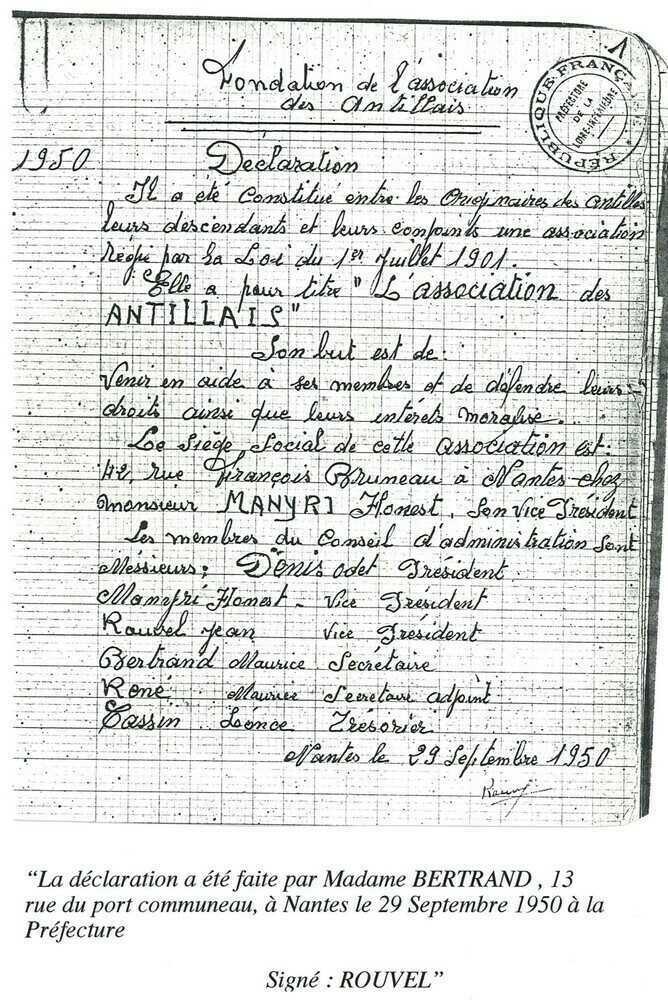 1
Fondation de l'association
des Antillais
RÉPUBLIQUE FRANÇAISE
PRÉFECTURE
DE LA
LOIRE-INFÉRIEURE
1950
Déclaration
Il a été constitué entre les Originaires des antilles
leurs descendants et leurs conjoints une association
Régie par la Loi du 1er Juillet 1901.
Elle a pour titre " L'association des
ANTILLAIS"
Son but est de:
Venir en aide à ses membres et de défendre leurs
droits ainsi que leurs intérets moraux.
Le Siège Social de cette association est:
42, rue François Bruneau à Nantes chez
monsieur MANYRI Honest, son Vice Président
Les membres du Conseil d'administration sont
Messieurs: Denis Odet Président
Manyri Honest - Vice Président
Rouvel Jean Vice Président
Bertrand Maurice Secrétaire
René Maurice Secretaire adjoint
Cassin Léonce Trésorier
Nantes le 29 Septembre 1950
Rouvel
“La déclaration a été faite par Madame BERTRAND , 13
rue du port communeau, à Nantes le 29 Septembre 1950 à la
Préfecture
Signé : ROUVEL”